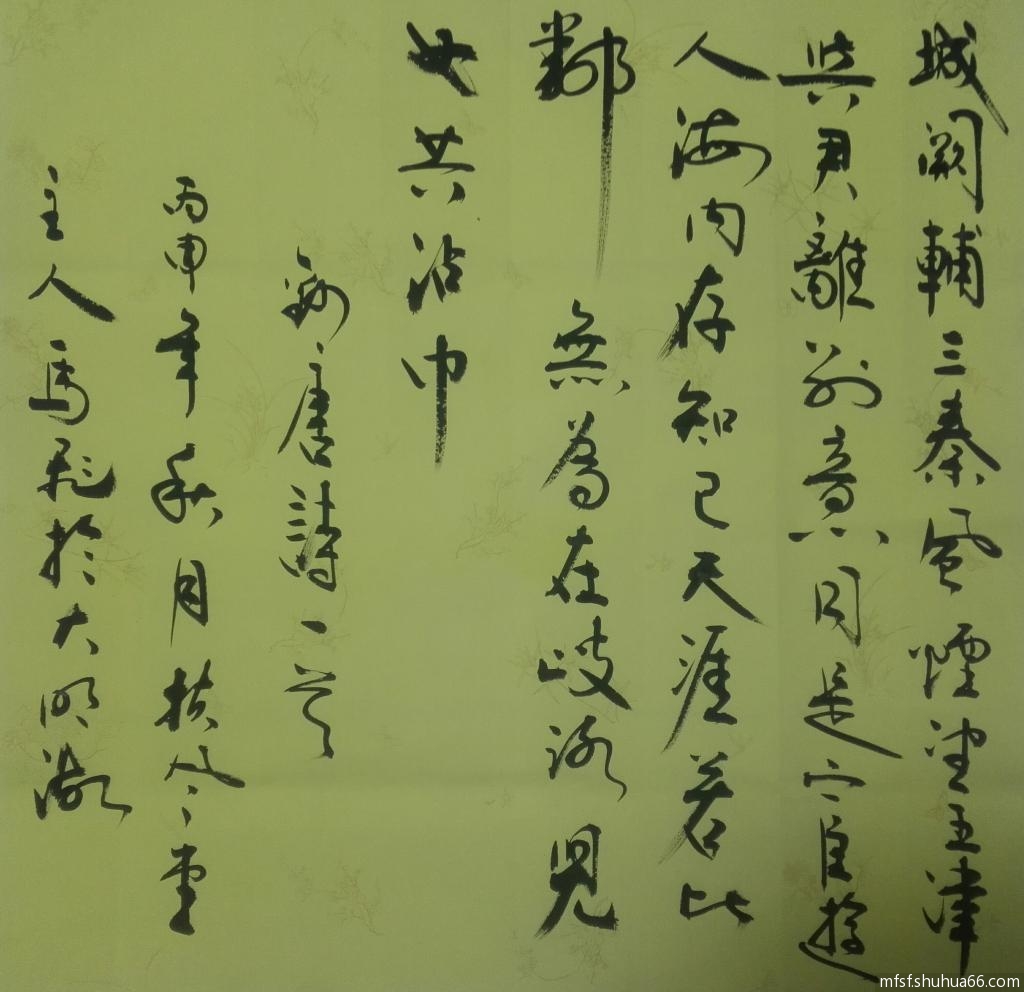 城闕輔三秦風煙望五津
與君離别意同是宦遊
人海内存知己天涯若比
鄰 無為在歧路兒
女共沾巾
錄唐詩一首
丙申年秋月扶风堂
主人馬於大明湖
mfsf.shuhua66.com